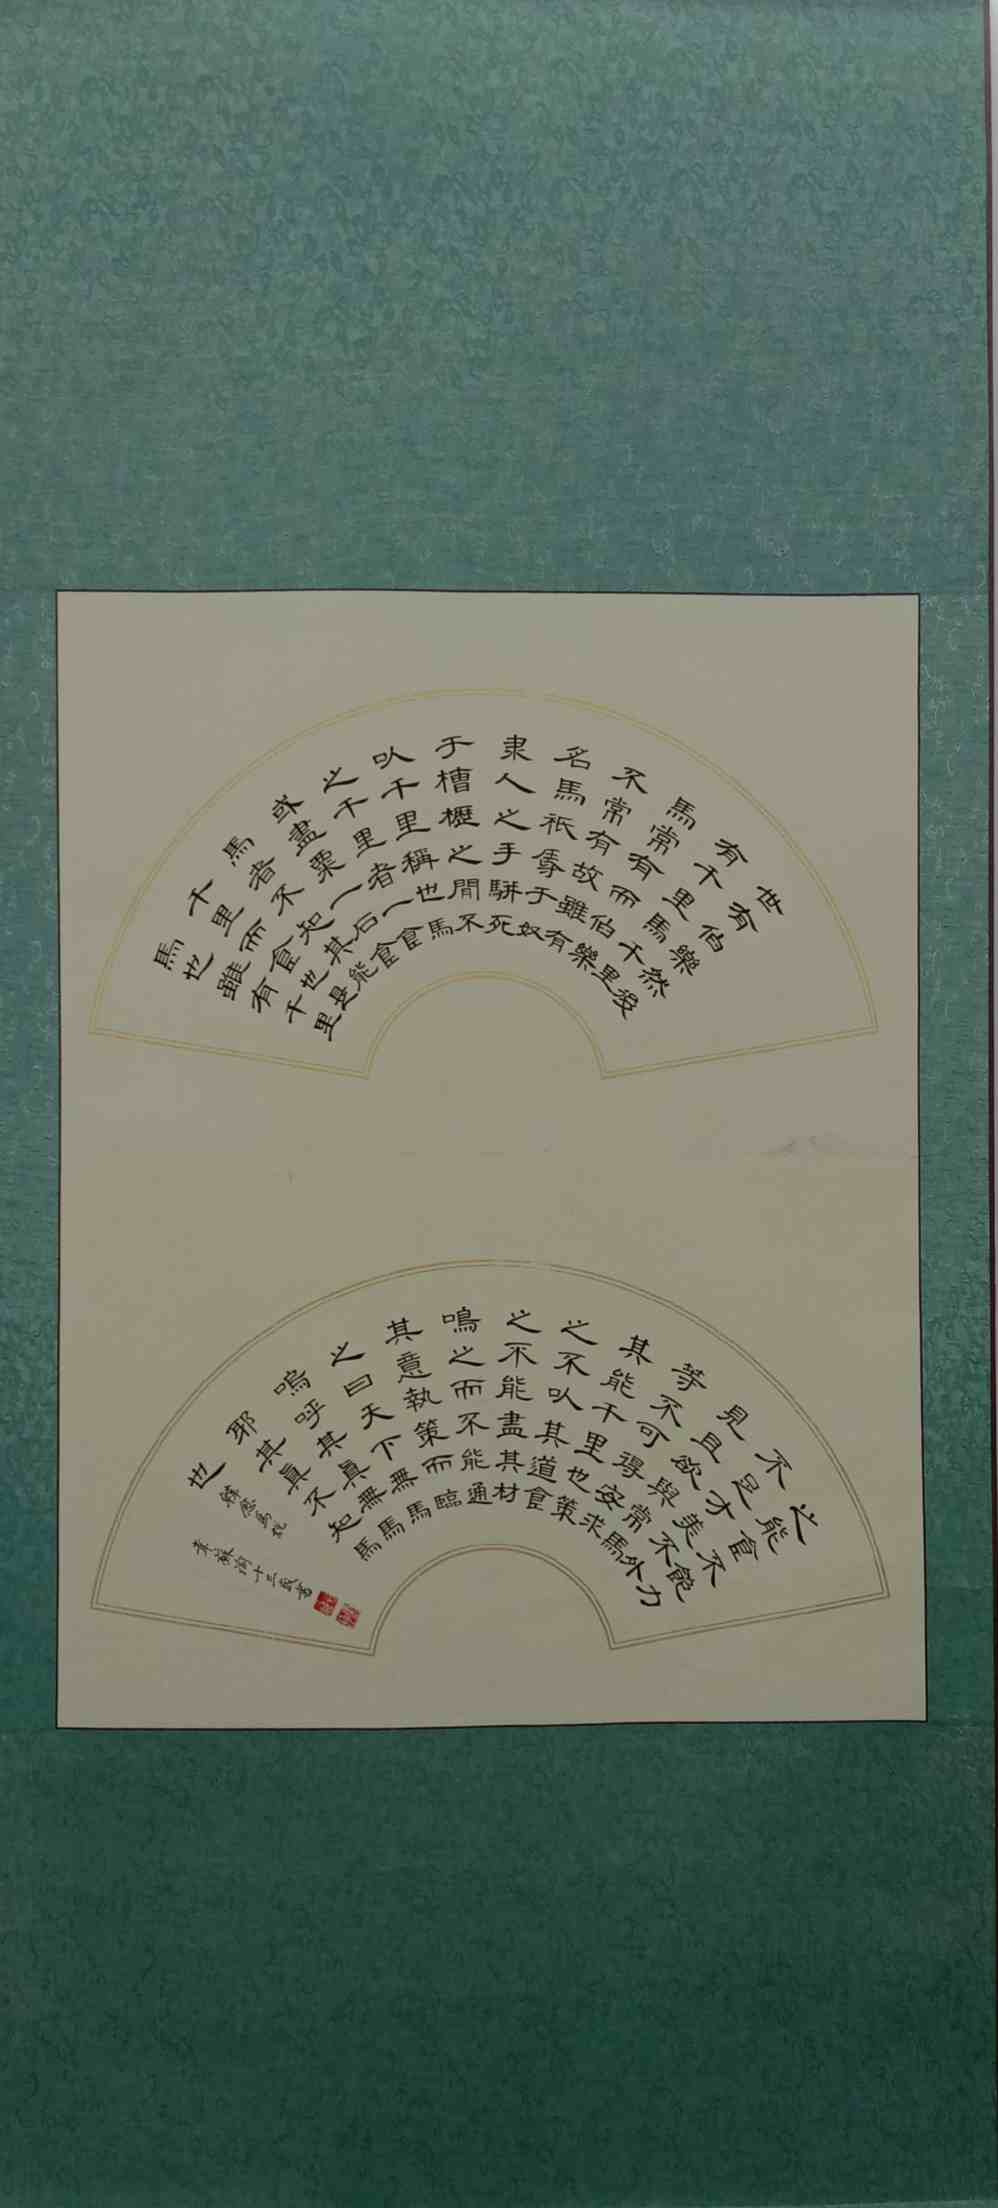 世有伯樂然後
有千里馬千里
馬常有而伯樂
不常有故雖有
名馬祇辱于奴
隶人之手駢死
于槽櫪之間不
以千里稱也馬
之千里者一食
或盡粟一石食
馬者不知其能
千里而食也是
馬也雖有千里
之能食不飽力
不足才美不外
見且欲與常馬
等不可得安求
其能千里也策
之不以其道食
之不能盡其材
鳴之而不能通
其意執策而臨
之曰天下無馬
嗚呼其眞無馬
耶其眞不知馬
也
韓愈馬說
十三歲書